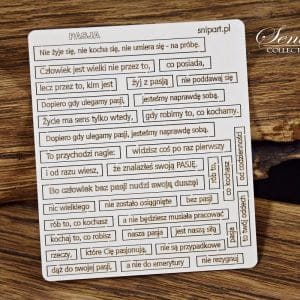 PASJA
snipart.pl
Nie żyje się, nie kocha się, nie umiera się - na próbę.
Człowiek jest wielki nie przez to, co posiada,
lecz przez to, kim jest żyj z pasją nie poddawaj się
Dopiero gdy ulegamy pasji, jesteśmy naprawdę sobą.
Życie ma sens tylko wtedy, gdy robimy to, co kochamy.
Dopiero gdy ulegamy pasji, jesteśmy naprawdę sobą.
To przychodzi nagle: widzisz coś po raz pierwszy
i od razu wiesz, że znalazłeś swoją PASJĘ.
Bo człowiek bez pasji nudzi swoją duszę!
nic wielkiego nie zostało osiągnięte bez pasji
rób to, co kochasz a nie będziesz musiała pracować
kochaj to, co robisz nasza pasja jest naszą siłą
rzeczy, które Cię pasjonują, nie są przypadkowe
dąż do swojej pasji, a nie do emerytury nie rezygnuj
rób to,
co kochasz
pasja
to twój oddech
od codzienności
COLLECT